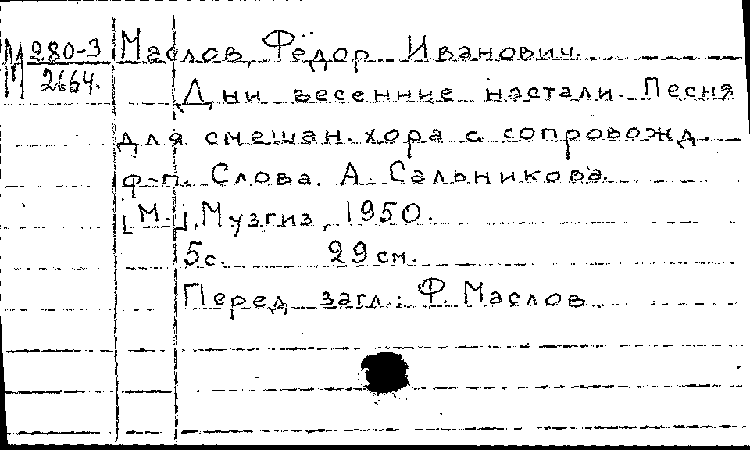 М 280-3 Маслов, Фёдор Иванович.
2664.
Дни весенние настали. Песня
для смешан. хора с сопровожд.
ф-п. Слова А. Сальникова.
[М.], Музгиз, 1950.
5с. 29 см.
Перед загл.: Ф. Маслов